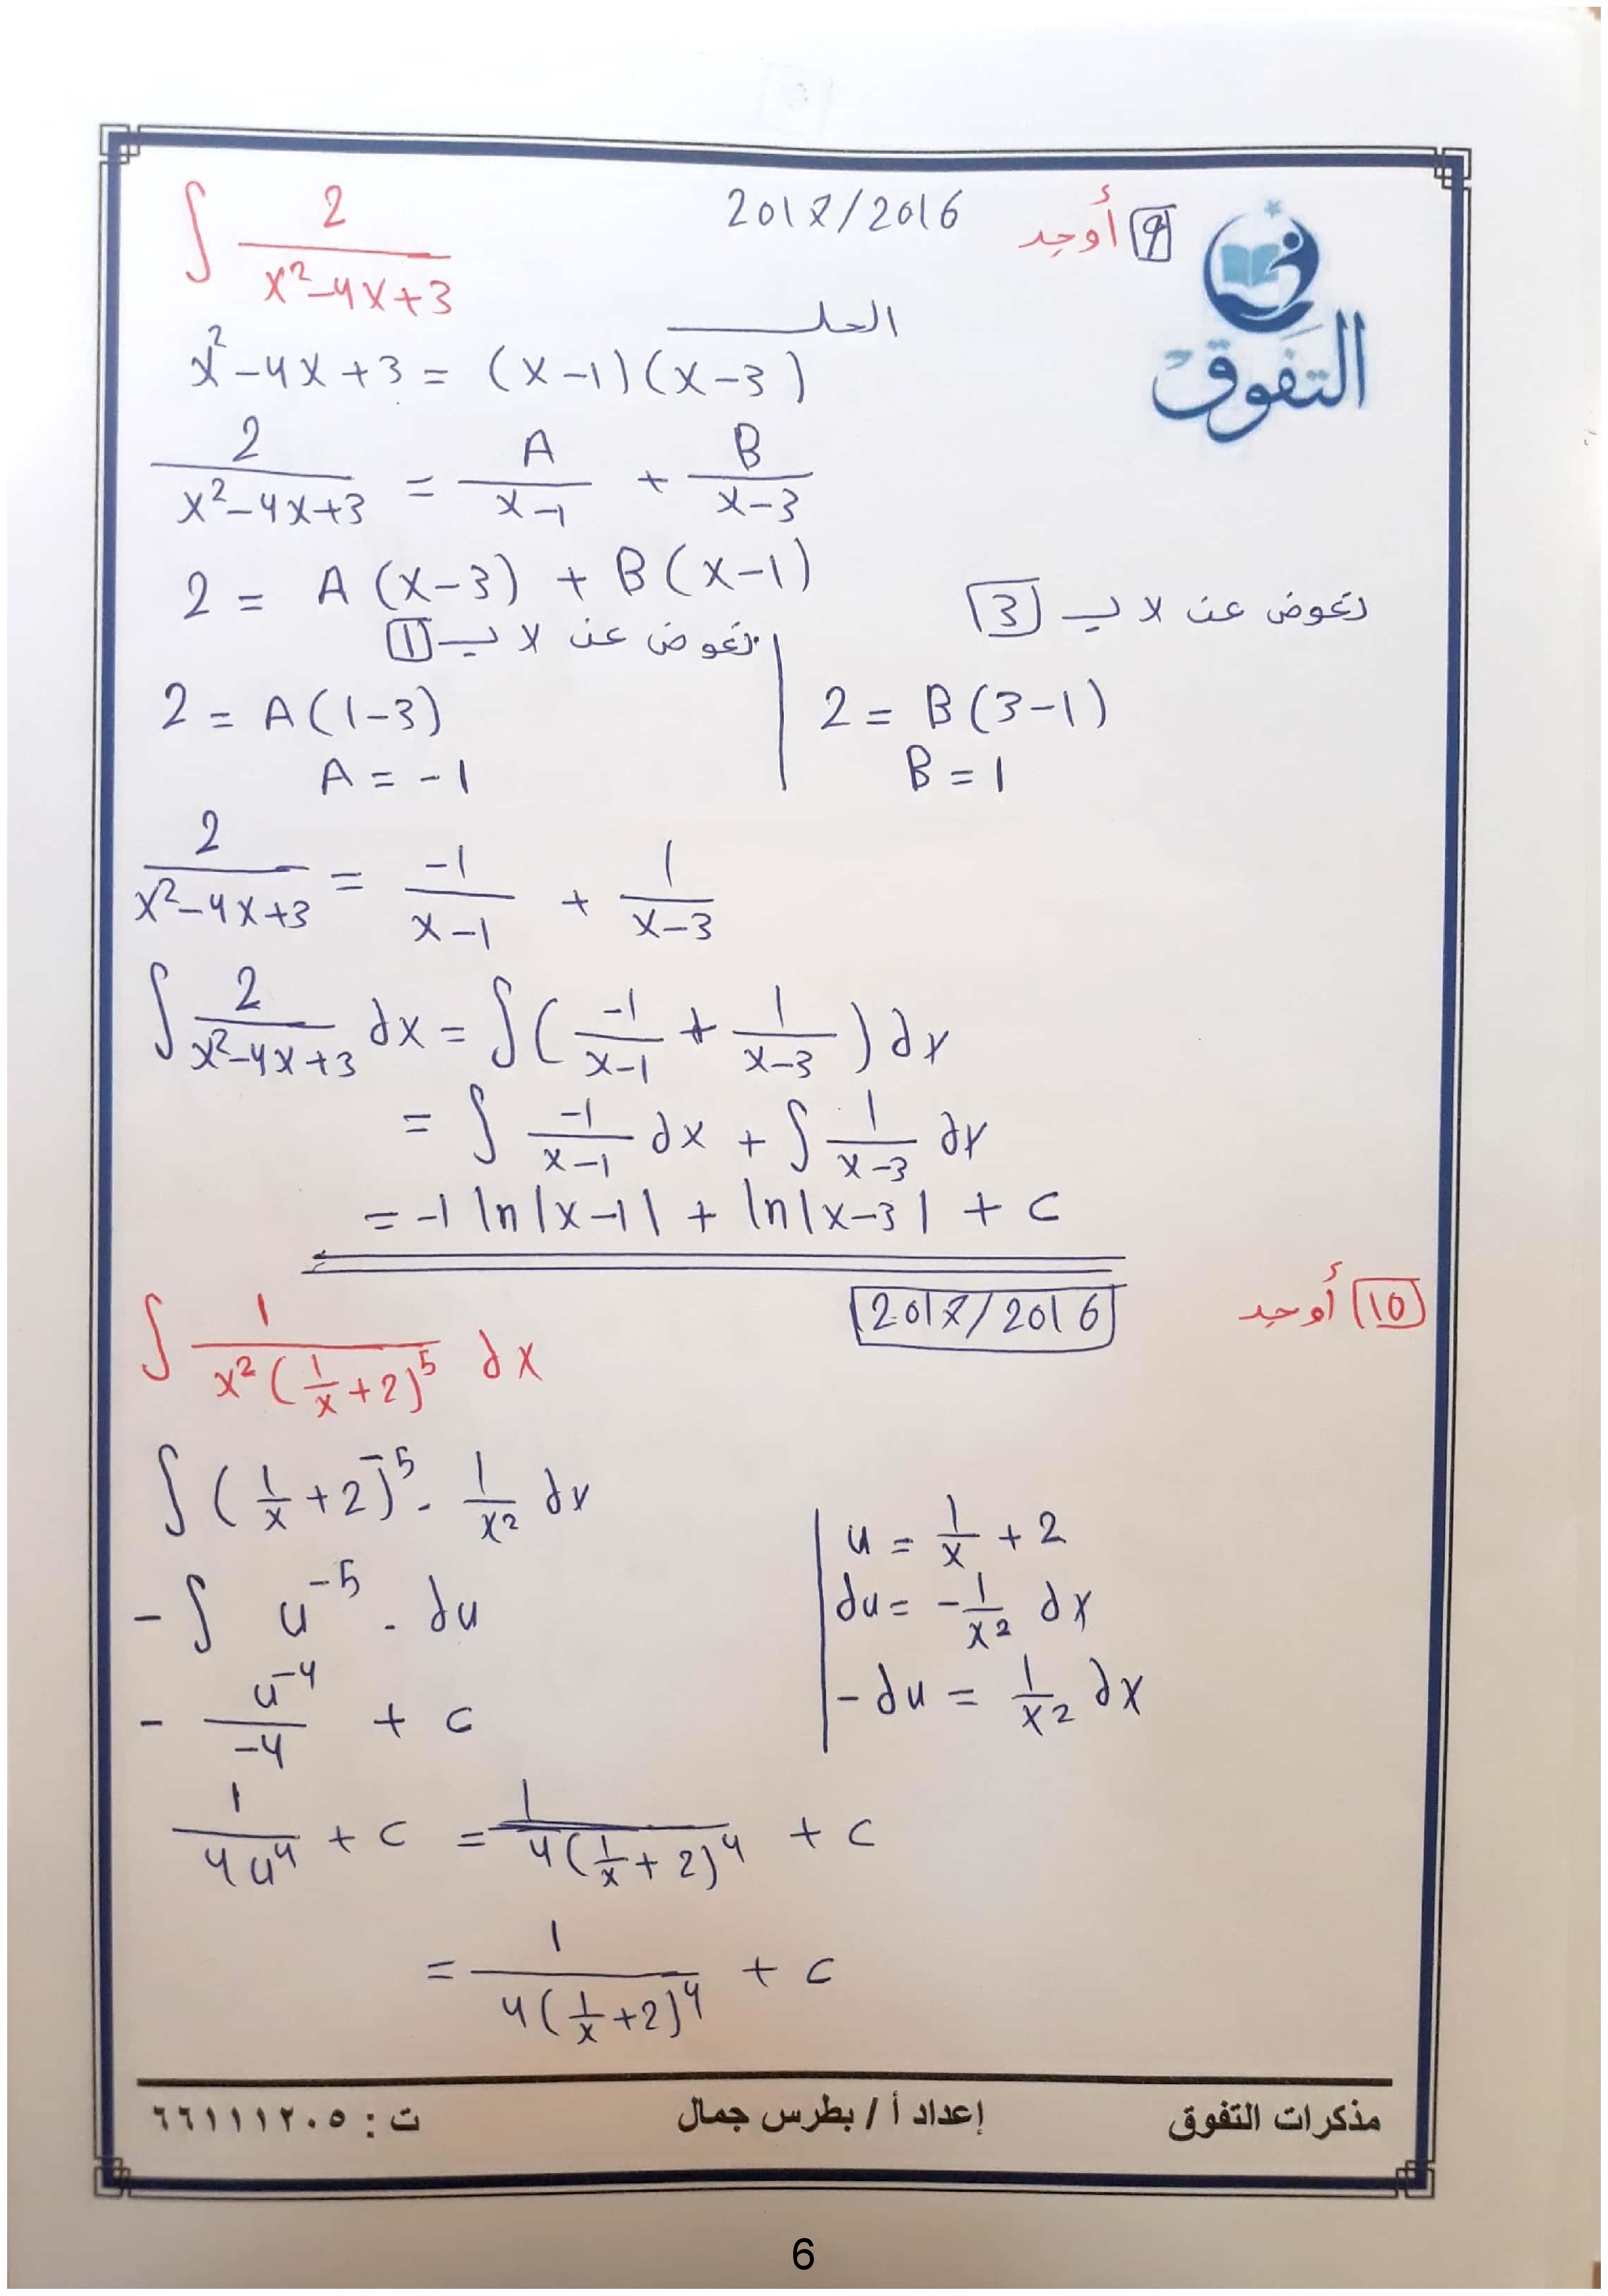 9 أوجد 2017/2016 ∫ 2/(x²-4x+3)
التفوق
الحل
x²-4x+3 = (x-1)(x-3)
2/(x²-4x+3) = A/(x-1) + B/(x-3)
2 = A(x-3) + B(x-1)
نعوض عن x بـ 3
نعوض عن x بـ 1
2 = A(1-3) | 2 = B(3-1)
A = -1 | B = 1
2/(x²-4x+3) = -1/(x-1) + 1/(x-3)
∫ 2/(x²-4x+3) dx = ∫( -1/(x-1) + 1/(x-3) ) dx
= ∫ -1/(x-1) dx + ∫ 1/(x-3) dx
= -1 ln|x-1| + ln|x-3| + c
10 أوجد 2017/2016
∫ 1/(x²(1/x+2)⁵) dx
∫ (1/x+2)⁻⁵ . 1/x² dx | u = 1/x + 2
-∫ u⁻⁵ . du | du = -1/x² dx
- u⁻⁴/-4 + c | -du = 1/x² dx
1/(4u⁴) + c = 1/(4(1/x+2)⁴) + c
= 1/(4(1/x+2)⁴) + c
مذكرات التفوق إعداد أ / بطرس جمال ت : ٦٦١١١٢٠٥
6